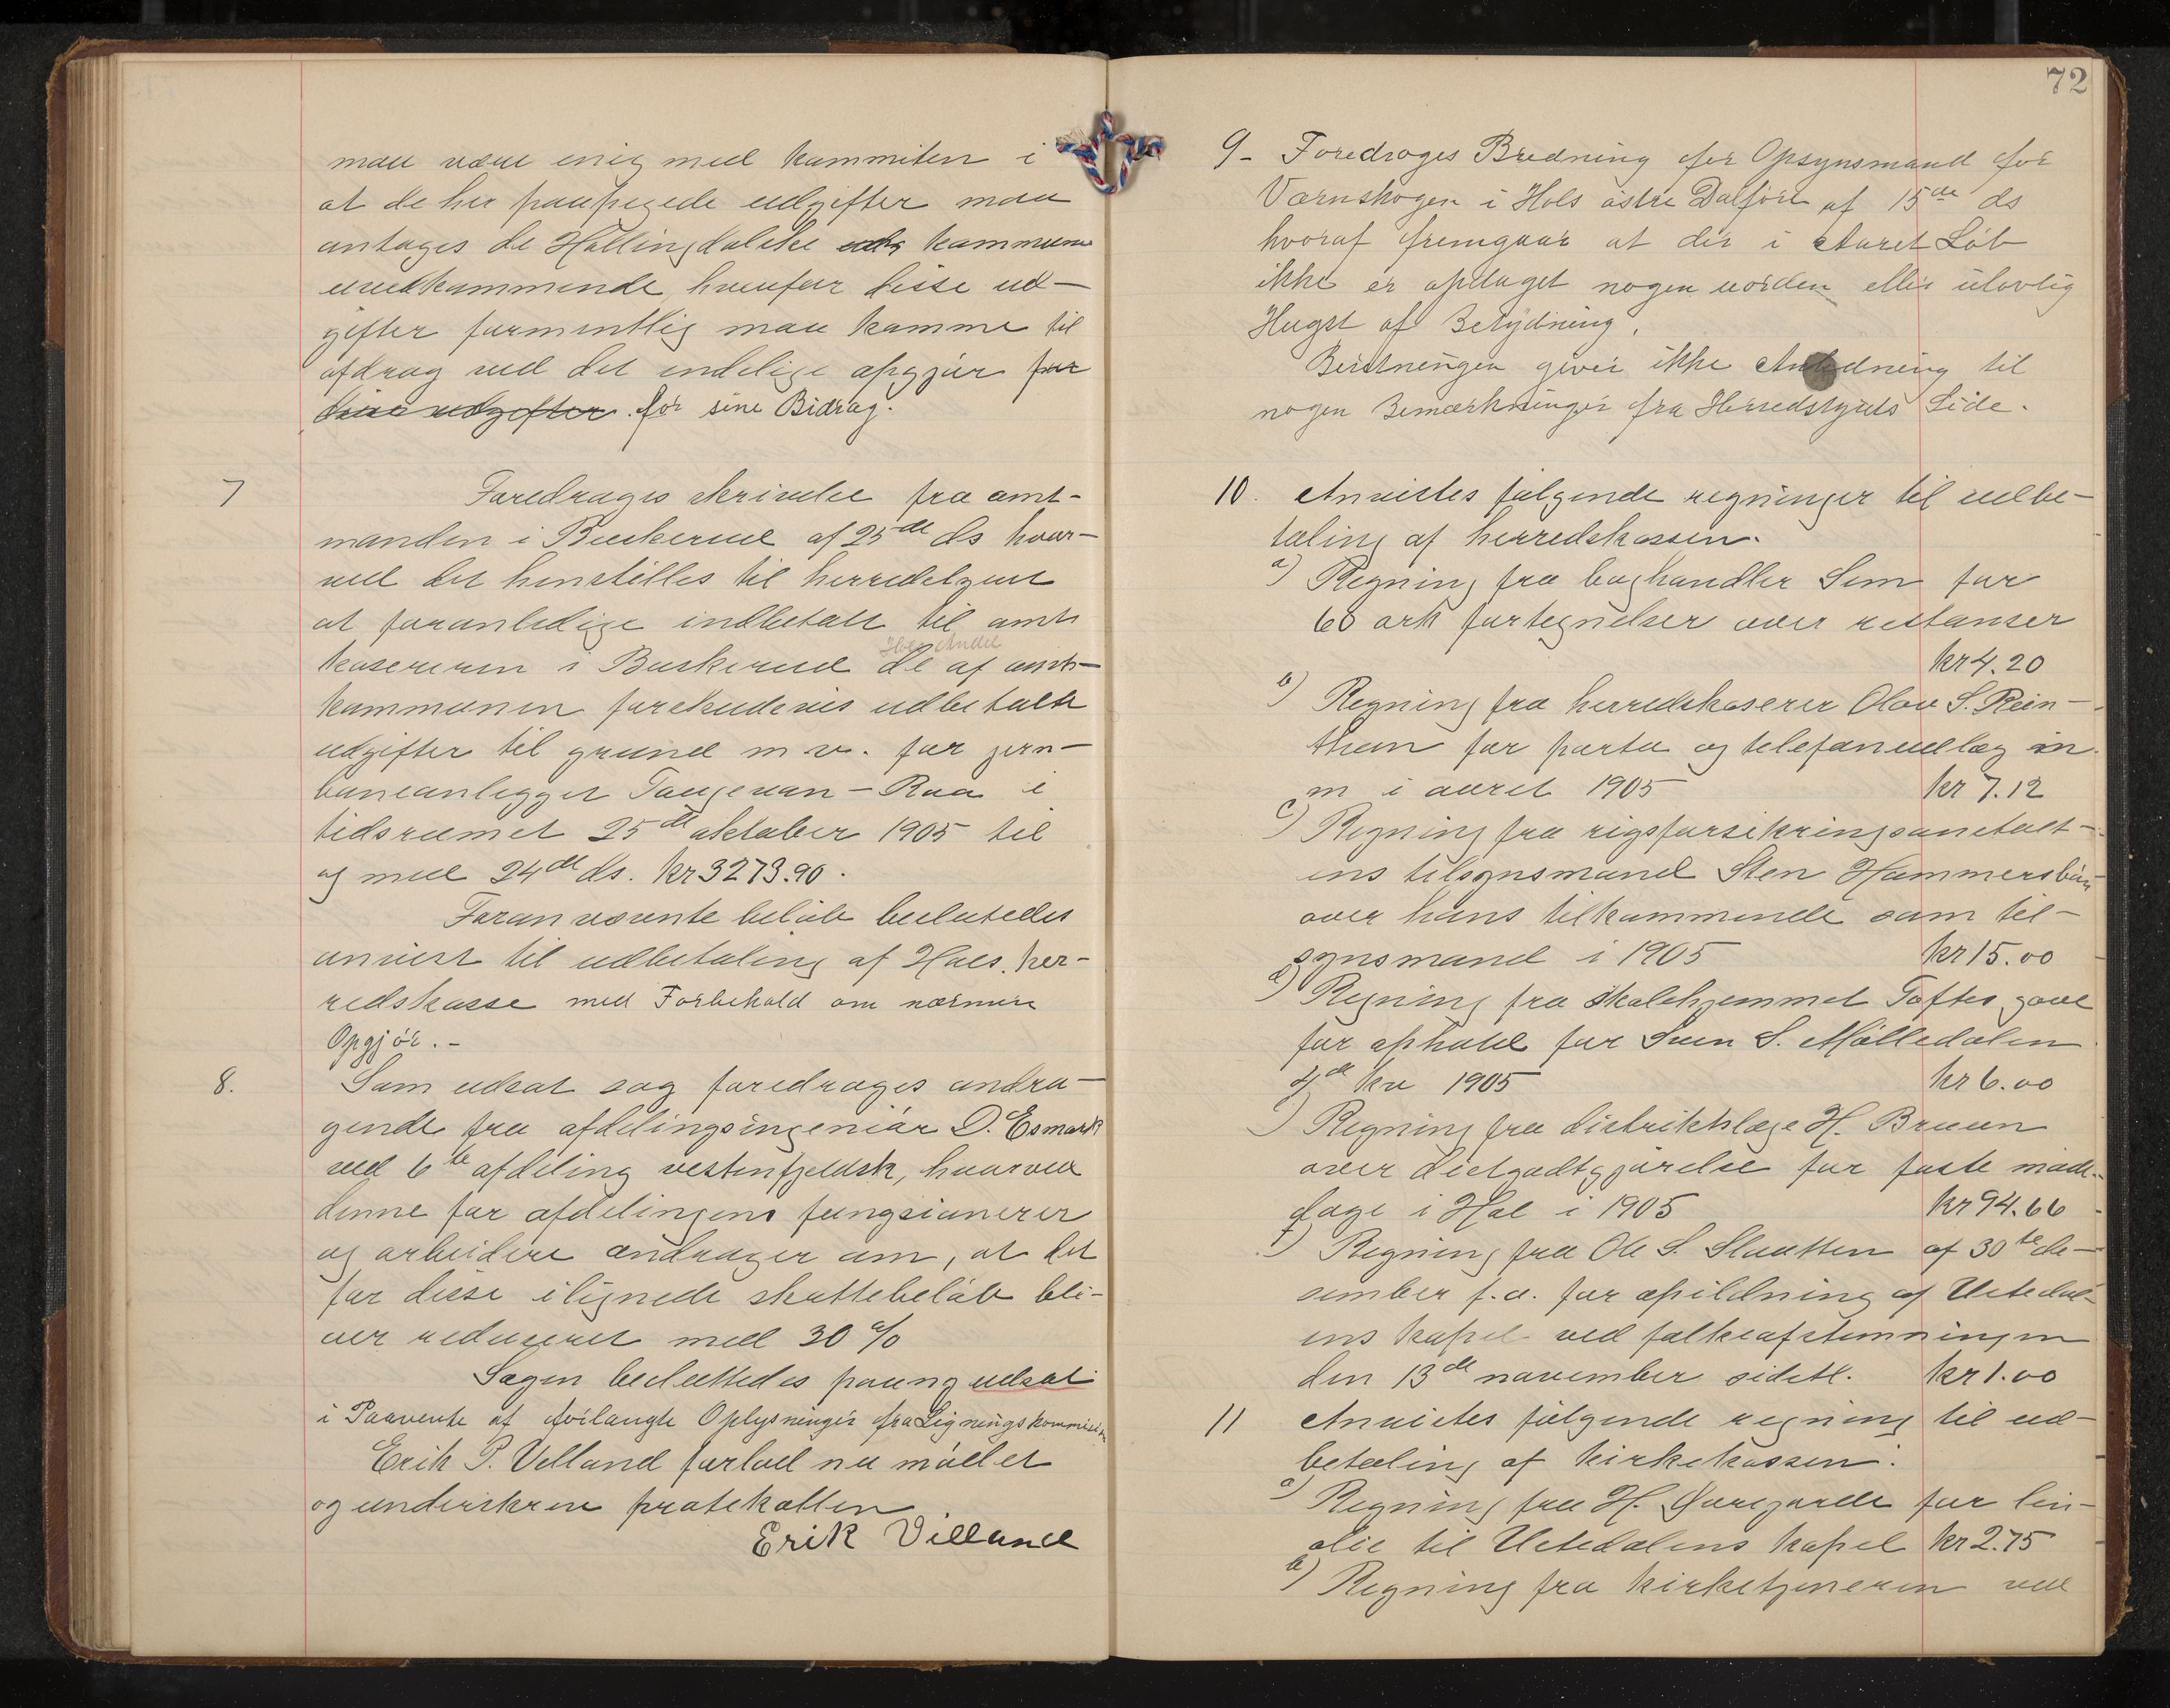 maa være enig med kammiten i
at de her paapegede udgifter maa
antages de Hallingdalske kammuner
uvedkammende, hvorfor disse ud-
gifter formentlig maa kamme til
afdrag ved det endelige apgjør for
disse udgifter. for sine Bidrag.
7 Foredrages skrivelse fra amt-
manden i Buskerud af 25de ds hvor-
ved det henstilles til herredstyret
at foranledige indbetalt til amts
Hols Andel
kasereren i Buskerud de af amts-
kammunen forskudsvis udbetalte
udgifter til grund m v. for jern-
baneanlegget Taugevan - Roa i
tidsrummet 25de oktober 1905 til
og med 24de ds. kr 3273.90.
Foran nævnte beløb besluttedes
anvist til udbetaling af Hols her-
redskasse med Forbehold om nærmere
Opgjör. -
8. Som udsat sag foredrages andra-
gende fra afdelingsingeniør D. Esmark
ved 6te afdeling vestenfjeldsk, hvorved
denne for afdelingens fungsionerer
og arbeidere andrager om, at det
for disse ilignede skattebeløb bli-
ver reduseret med 30 %
Sagen besluttedes paany udsat
i Paavente af forlangte Oplysninger fra Ligningskommisionen
Erik P. Villand forlod nu mødet
og underskrev protokollen
Erik Villand
72
9- Foredroges Bredning fer Opsynsmand for
Værnskogen i Hols östre Dalföre af 15de ds
hvoraf fremgaar at der i Aaret Löb
ikke er opdaget nogen uorden eller ulovlig
Hugst af Betydning.
Beretningen giver ikke Anledning til
nogen Bemærkninger fra Herredstyrets Side.
10. Anvistes følgende regninger til udbe-
taling af herredskassen.
a) Regning fra boghandler Sem for
60 ark fortegnelser over restanser
kr 4.20
b) Regning fra herredskaserer Olav S. Rein-
ton for porto og telefonudlæg m.
m i aaret 1905 kr 7.12
c) Regning fra rigsforsikringsanstalt-
ens tilsynsmand Sten Hammersbøn
over hans tilkommende som til-
synsmand i 1905 kr 15.00
d) Regning fra skolehjemmet Toftes gave
for ophold for Sven S. Mølledalen
4de kv 1905 kr 6.00
Regning fra distriktslæge H. Bruun
over dietgodtgjørelse for faste møde-
dage i Hol i 1905 kr 94.66
f) Regning fra Ole S. Slaatten af 30te de-
sember f.a. for opildning af Ustedal-
ens kapel ved folkeafstemningen
den 13de november sidstl. kr 1.00
11 Anvistes følgende regning til ud-
betaling af kirkekassen.
a) Regning fra H. for lin-
olie til Ustedalens kapel kr 2.75
b) Regning fra kirketjeneren ved